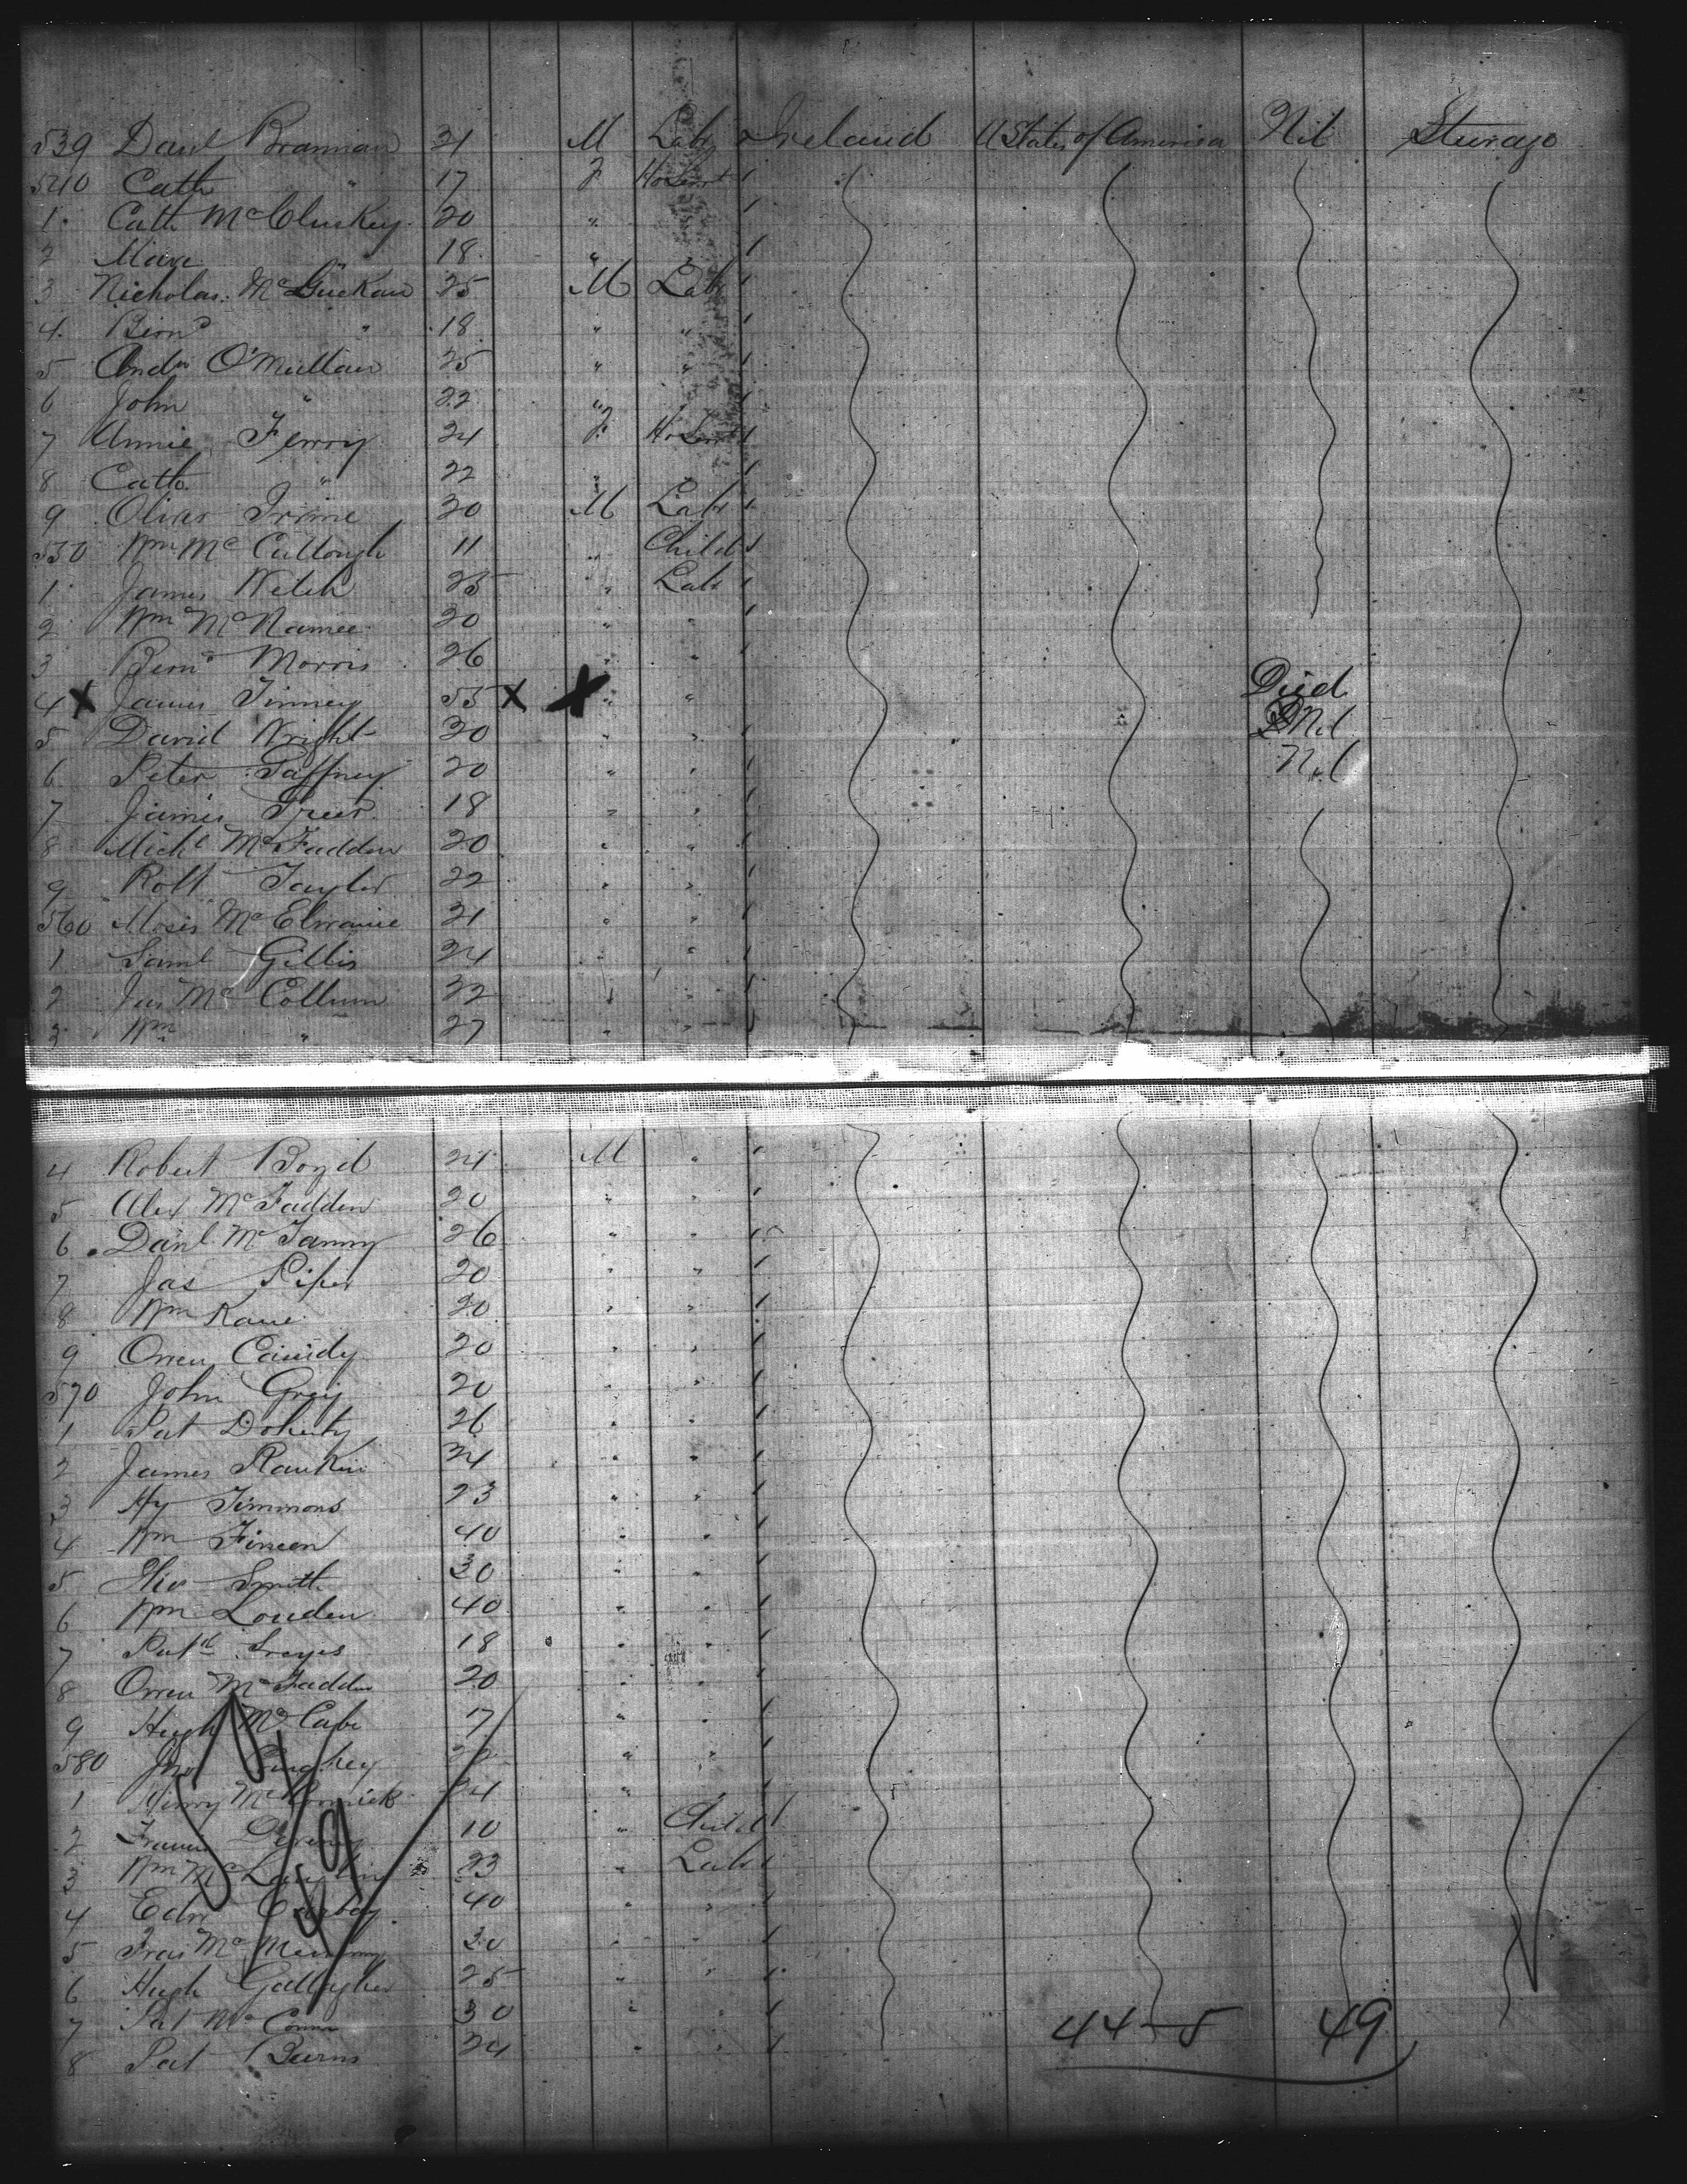 539 Danl Brannan 21 M Labr Ireland U States of America Nil Steerage
540 Cath " 17 F Ho Servt
1 Cath McCluskey 20 "
2 " 18 "
3 Nicholas McGuckan 25 M Labr
4 Bernd " 18 " "
5 Andw O'Mullan 25 " "
6 John " 22 "
7 Annie Ferry 24 F Ho Servt
8 Cath " 22 "
9 Oliver 30 M Labr
550 Wm McCullough 11 " Child
1 James Welch 25 " Labr
2 Wm McNamee 20 " "
3 Bernd Morris 26 " "
4 X James Tinney 55 X X " " Died
5 David Wright 30 " " Nil
6 Peter Gaffney 20 " " Nil
7 James 18 " "
8 Michl McFadden 20 " "
9 Robt Taylor 22 " "
560 Moses McElwaine 21 " "
1 Saml Gillis 24 " "
2 Jas McCollum 32 " "
3 Wm " 27 " "
4 Robert Boyd 24 M "
5 Alex McFadden 20 " "
6 Danl 26 " "
7 Jas Piper 20 " "
8 Wm Kane 20 " "
9 Owen Cassidy 20 " "
570 John Gray 20 " "
1 Pat Doherty 26 " "
2 James Rankin 34 " "
3 Hy Timmons 23 " "
4 Wm 40 " "
5 Smith 30 " "
6 Wm Louden 40 " "
7 Patk 18 " "
8 Owen McFadden 20 " "
9 Hugh McCabe 17 " "
580 Jno 22 " "
1 Henry McCormick 24 " "
2 10 " Child
3 Wm 23 " Labr
4 Edw 40 " "
5 30 " "
6 Hugh Gallagher 25 " "
7 Pat 30 " "
8 Pat Burns 24 " "
44-5 49